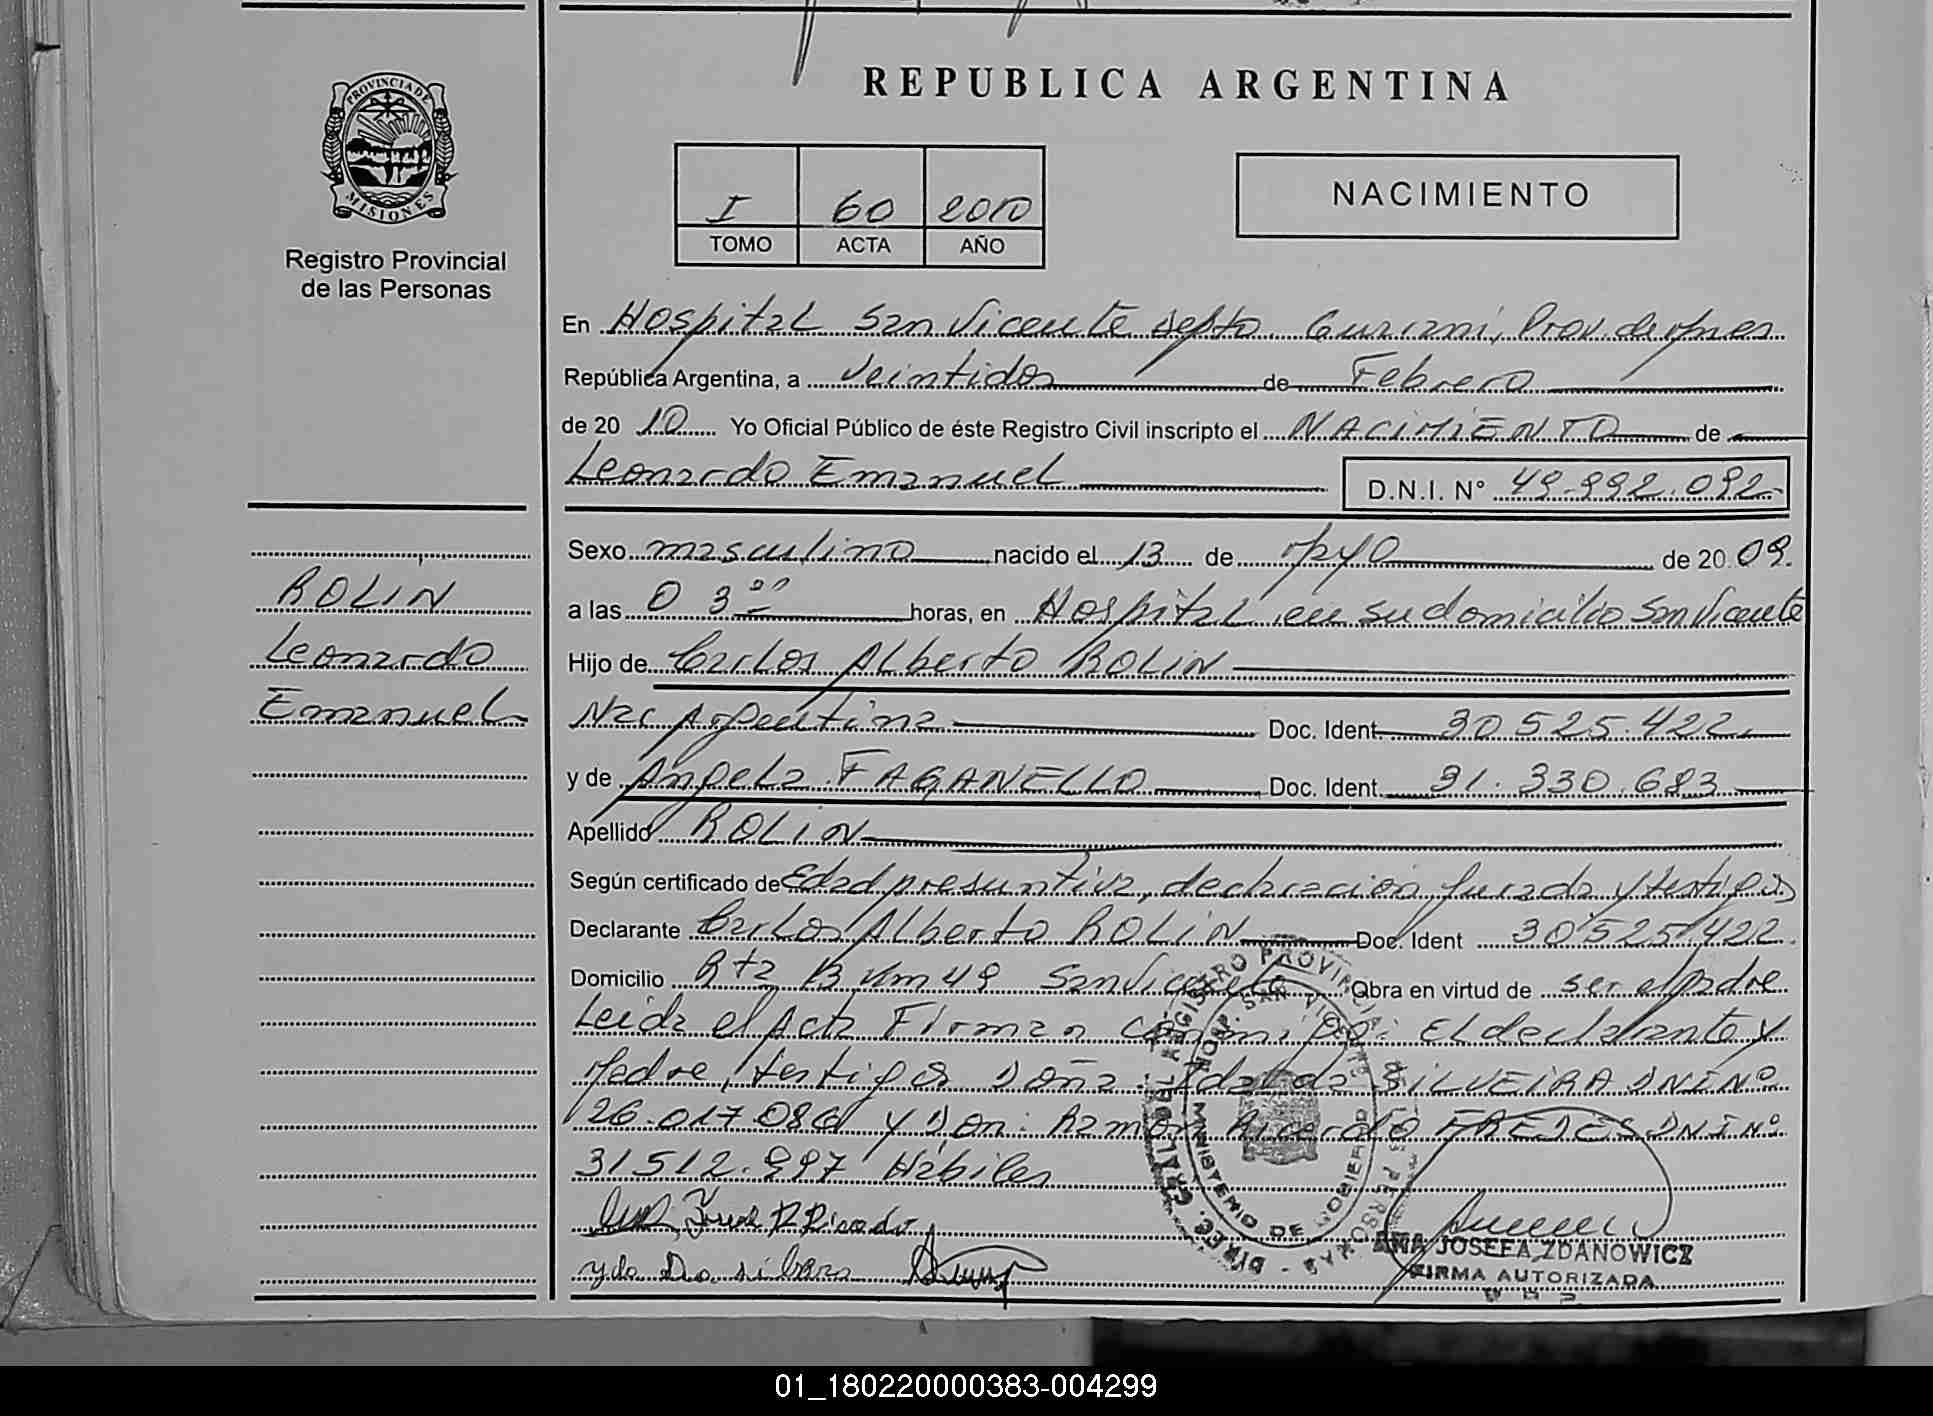 REPUBLICA ARGENTINA
PROVINCIA DE
MISIONES
Registro Provincial
de las Personas
I 60 2010
TOMO ACTA AÑO
NACIMIENTO
En Hospital San Vicente depto Guarani, Prov. de
República Argentina, a veintidos de Febrero
de 20 10 Yo Oficial Público de éste Registro Civil inscripto el NACIMIENTO de
Leonardo Emanuel
D.N.I. N° 49.992.092
Sexo masculino nacido el 13 de de 20 09.
a las 03 00 horas, en Hospital en su domicilio San Vicente
Hijo de Carlos Alberto ROLIN
Nac Argentina Doc. Ident. 30525.422
y de Angela FAGANELLO Doc. Ident. 31.330.683
Apellido ROLIN
Según certificado de Edad presuntiva, declaracion jurada y testigos
Declarante Carlos Alberto ROLIN Doc. Ident 30525422.
Domicilio Rta 13 Km 49 San Vicente Obra en virtud de ser el padre
Leida el Acta Firman conmigo: El declarante y
Madre, testigos Doña: SILVEIRA DNI Nº
26.017.086 y Don: Ramon Ricardo DNI Nº
31512.997 Habiles
ROLIN
Leonardo
Emanuel
DIREC. GRAL. DEL REGISTRO PROVINCIAL DE LAS PERSONAS
HOSP. SAN VICENTE
MINISTERIO DE GOBIERNO
ANA JOSEFA ZDANOWICZ
FIRMA AUTORIZADA
01_180220000383-004299